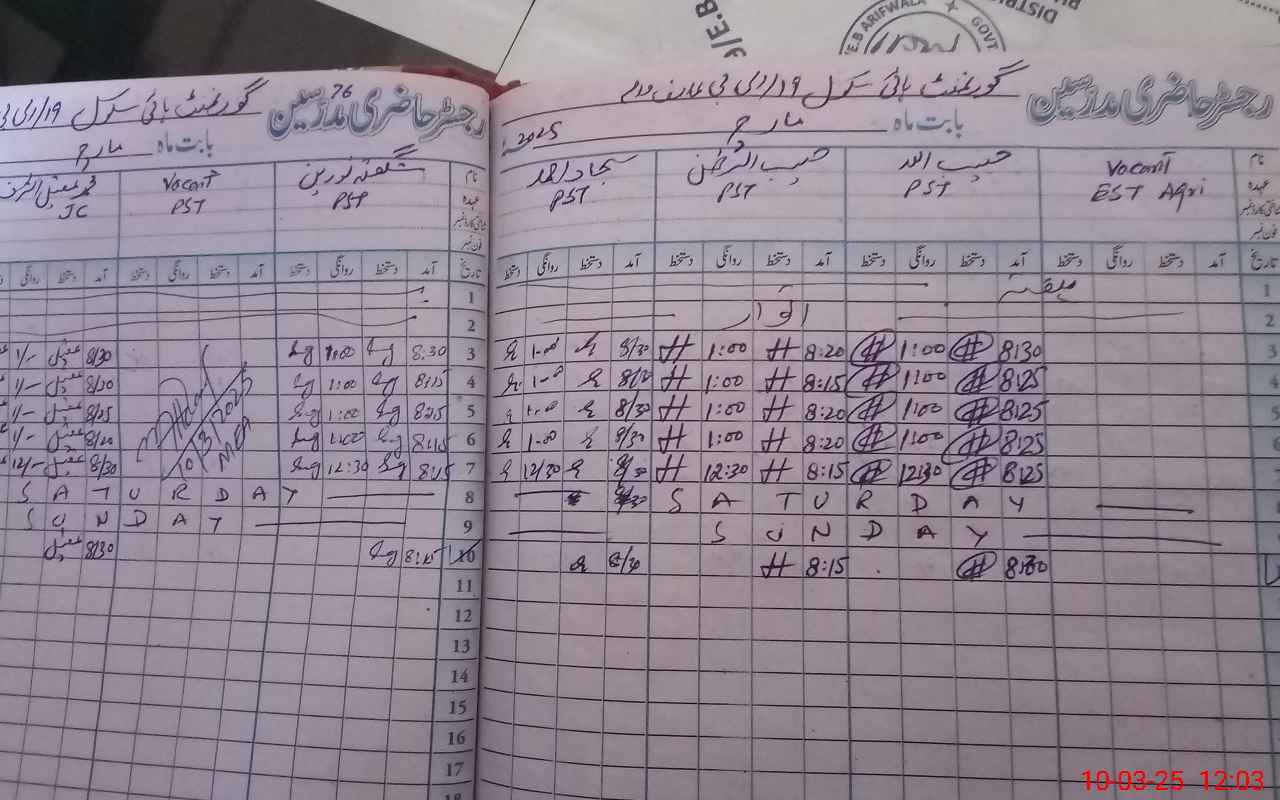 E.B ARIFWALA ✦ GOVT
9/E.B
DISTRI
رجسٹر حاضری مدرسین
گورنمنٹ ہائی سکول 19/ای بی عارف والا
بابت ماہ مارچ 2025
نام Vocant حبیب اللہ حبیب الرحمٰن سجاد احمد
عہدہ EST Agri PST PST PST
فون نمبر
تاریخ آمد دستخط روانگی دستخط آمد دستخط روانگی دستخط آمد دستخط روانگی دستخط آمد دستخط روانگی دستخط
1 ہفتہ
2 اتوار
3 8:30 1:00 8:20 1:00 8/30 1-00
4 8:25 1:00 8:15 1:00 1-00
5 8:25 1:00 8:20 1:00 8/30 1-00
6 8:25 1:00 8:20 1:00 8/30 1-00
7 8:25 12:30 8:15 12:30 8/30 12/30
S A T U R D A Y
S U N D A Y
8:15
76
رجسٹر حاضری مدرسین
گورنمنٹ ہائی سکول 19/ای بی
بابت ماہ مارچ
نام شگفتہ نورین Vocant
عہدہ PST PST JC
فون نمبر
تاریخ آمد دستخط روانگی دستخط آمد دستخط روانگی دستخط آمد دستخط روانگی
1
2
3 8:30 1:00 8/30 1/-
4 8:15 1:00 8/20 1/-
5 8:15 1:00 8/25 1/-
6 8:15 1:00 8/20 1/-
7 8:15 12:30 8/30 12/-
10/3/2025
MEA
8 S A T U R D A Y
9 S U N D A Y
10 8:15 8/30
11
12
13
14
15
16
17
18
10-03-25 12:03